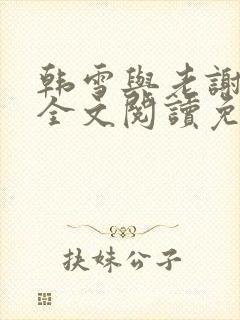 韩雪與老謝
全文閱讀免
扶妹公子